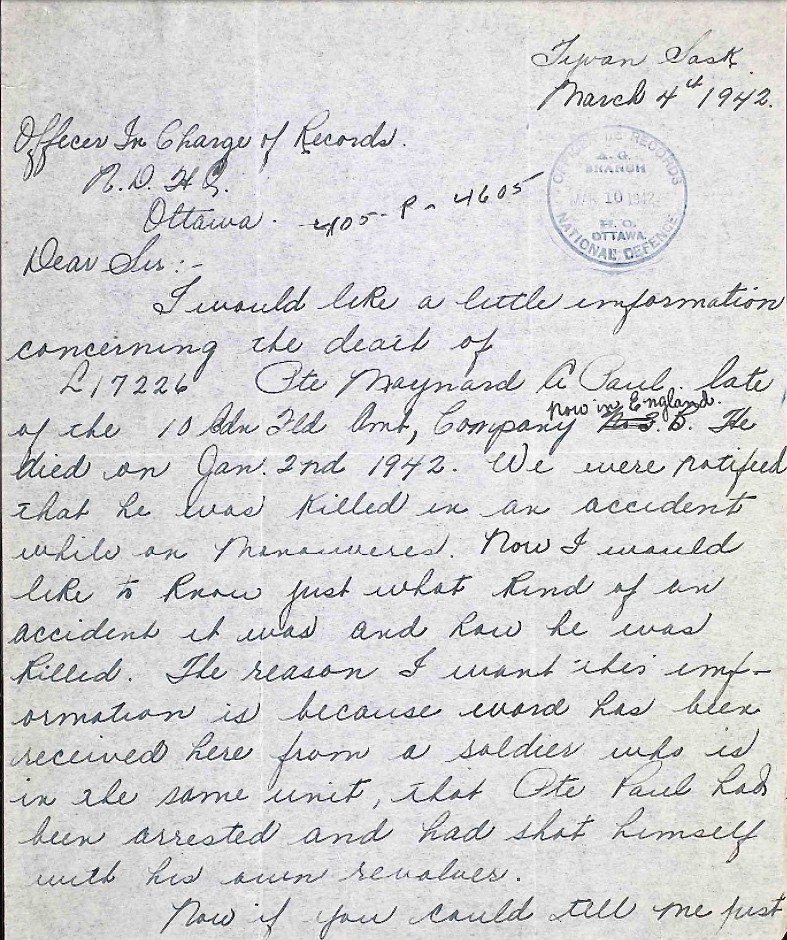 Tyvan Sask.
March 4th 1942.
OFFICER I/C RECORDS
A. G.
BRANCH
MAR 10 1942
H. Q.
OTTAWA.
NATIONAL DEFENCE
Officer In Charge of Records.
N. D. H. Q.
Ottawa.
405-P-4605
Dear Sir:-
I would like a little imformation
concerning the death of
L17226 Pte Maynard A Paul, late
now in England.
of the 10 Cdn Fld Amb, Company B. He
died on Jan. 2nd 1942. We were notified
that he was killed in an accident
while on Manouveres. Now I would
like to know just what kind of an
accident it was and how he was
killed. The reason I want this imf-
ormation is because word has been
received here from a soldier who is
in the same unit, that Pte Paul had
been arrested and had shot himself
with his own revolver.
Now if you could tell me just